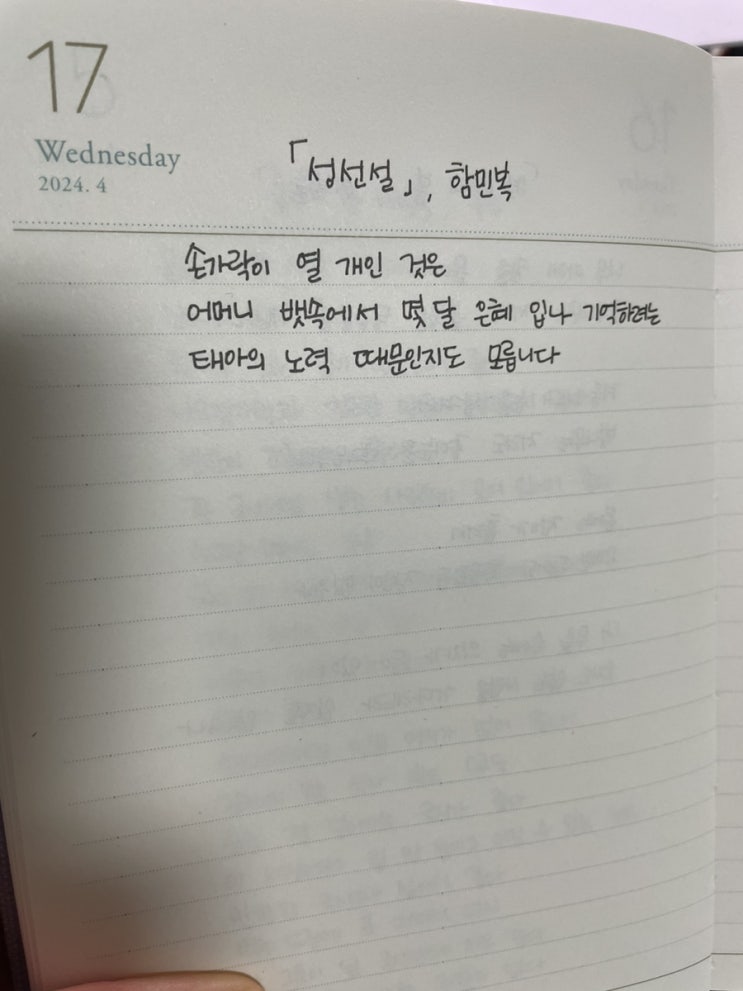 17
Wednesday
2024. 4
「성선설」, 함민복
손가락이 열 개인 것은
어머니 뱃속에서 몇 달 은혜 입나 기억하려는
태아의 노력 때문인지도 모릅니다